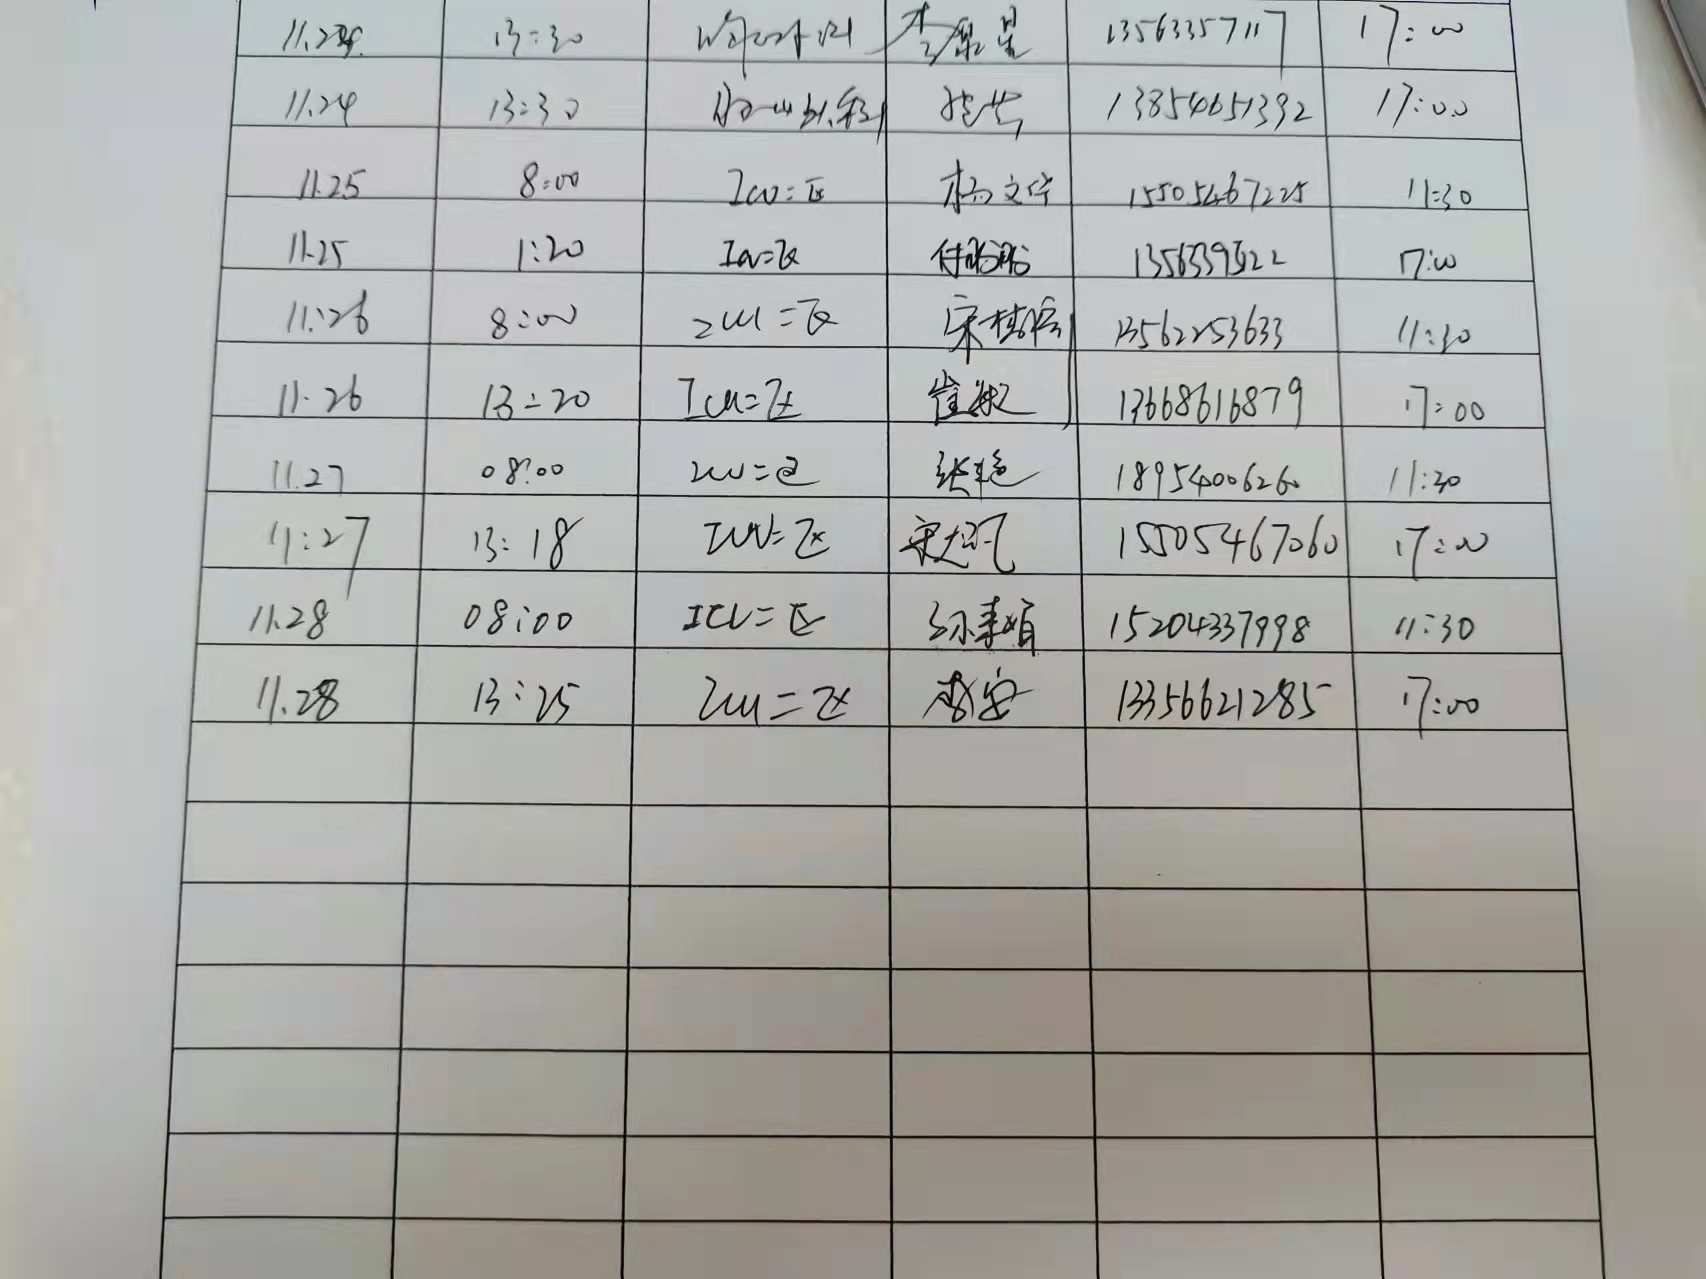 11.24 13:30 13563357117 17:00
11.24 13:30 13854651392 17:00
11.25 8:00 ICU二区 杨文华 15505467225 11:30
11.25 1:20 ICU二区 付 1356339522 17:00
11.26 8:00 ICU二区 宋 13562253633 11:30
11.26 13:20 ICU二区 崔 13668616879 17:00
11.27 08:00 ICU二区 张艳 18954006260 11:30
11:27 13:18 ICU二区 15505467060 17:00
11.28 08:00 ICU二区 孙娟 15204337998 11:30
11.28 13:25 ICU二区 13356621285 17:00